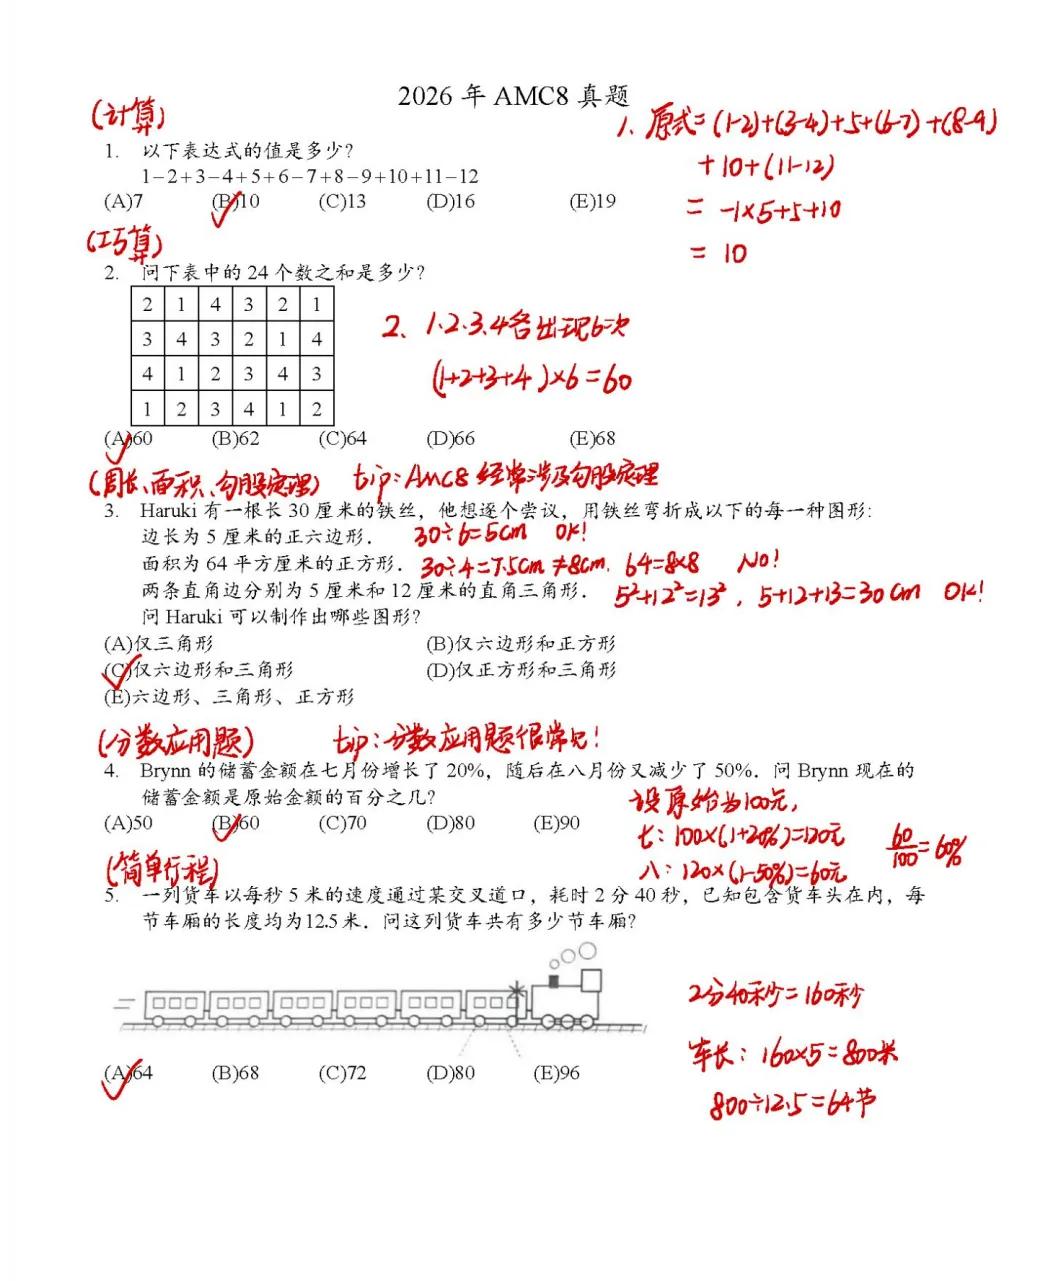 2026 年 AMC8 真题
(计算)
1. 以下表达式的值是多少?
1−2+3−4+5+6−7+8−9+10+11−12
(A)7 (B)10 (C)13 (D)16 (E)19
1、原式=(1-2)+(3-4)+5+(6-7)+(8-9)
+10+(11-12)
= -1×5+5+10
= 10
(巧算)
2. 问下表中的 24 个数之和是多少?
2 1 4 3 2 1
3 4 3 2 1 4
4 1 2 3 4 3
1 2 3 4 1 2
2、1、2、3、4各出现6次
(1+2+3+4)×6=60
(A)60 (B)62 (C)64 (D)66 (E)68
(周长、面积、勾股定理) tip:AMC8 经常涉及勾股定理
3. Haruki 有一根长 30 厘米的铁丝，他想逐个尝议，用铁丝弯折成以下的每一种图形:
边长为 5 厘米的正六边形. 30÷6=5cm OK!
面积为 64 平方厘米的正方形. 30÷4=7.5cm≠8cm. 64=8×8 No!
两条直角边分别为 5 厘米和 12 厘米的直角三角形. 5²+12²=13², 5+12+13=30cm OK!
问 Haruki 可以制作出哪些图形?
(A)仅三角形 (B)仅六边形和正方形
(C)仅六边形和三角形 (D)仅正方形和三角形
(E)六边形、三角形、正方形
(分数应用题) tip:分数应用题很常见!
4. Brynn 的储蓄金额在七月份增长了 20%，随后在八月份又减少了 50%. 问 Brynn 现在的
储蓄金额是原始金额的百分之几?
(A)50 (B)60 (C)70 (D)80 (E)90
设原始为100元,
七: 100×(1+20%)=120元
八: 120×(1-50%)=60元
60/100=60%
(简单行程)
5. 一列货车以每秒 5 米的速度通过某交叉道口，耗时 2 分 40 秒，已知包含货车头在内，每
节车厢的长度均为12.5 米. 问这列货车共有多少节车厢?
2分40秒=160秒
车长: 160×5=800米
800÷12.5=64节
(A)64 (B)68 (C)72 (D)80 (E)96